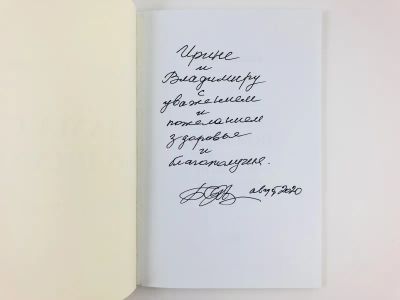 Ирине
и
Владимиру
с
уважением
и
пожеланием
здоровье
и
благополучие.
август 2020